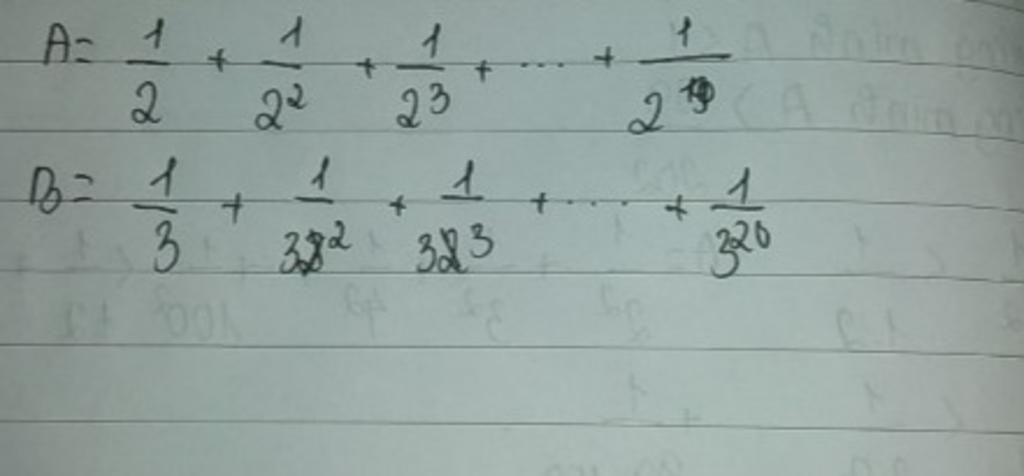 A = 1/2 + 1/2² + 1/2³ + ... + 1/2
B = 1/3 + 1/3² + 1/3³ + ... + 1/3²⁰